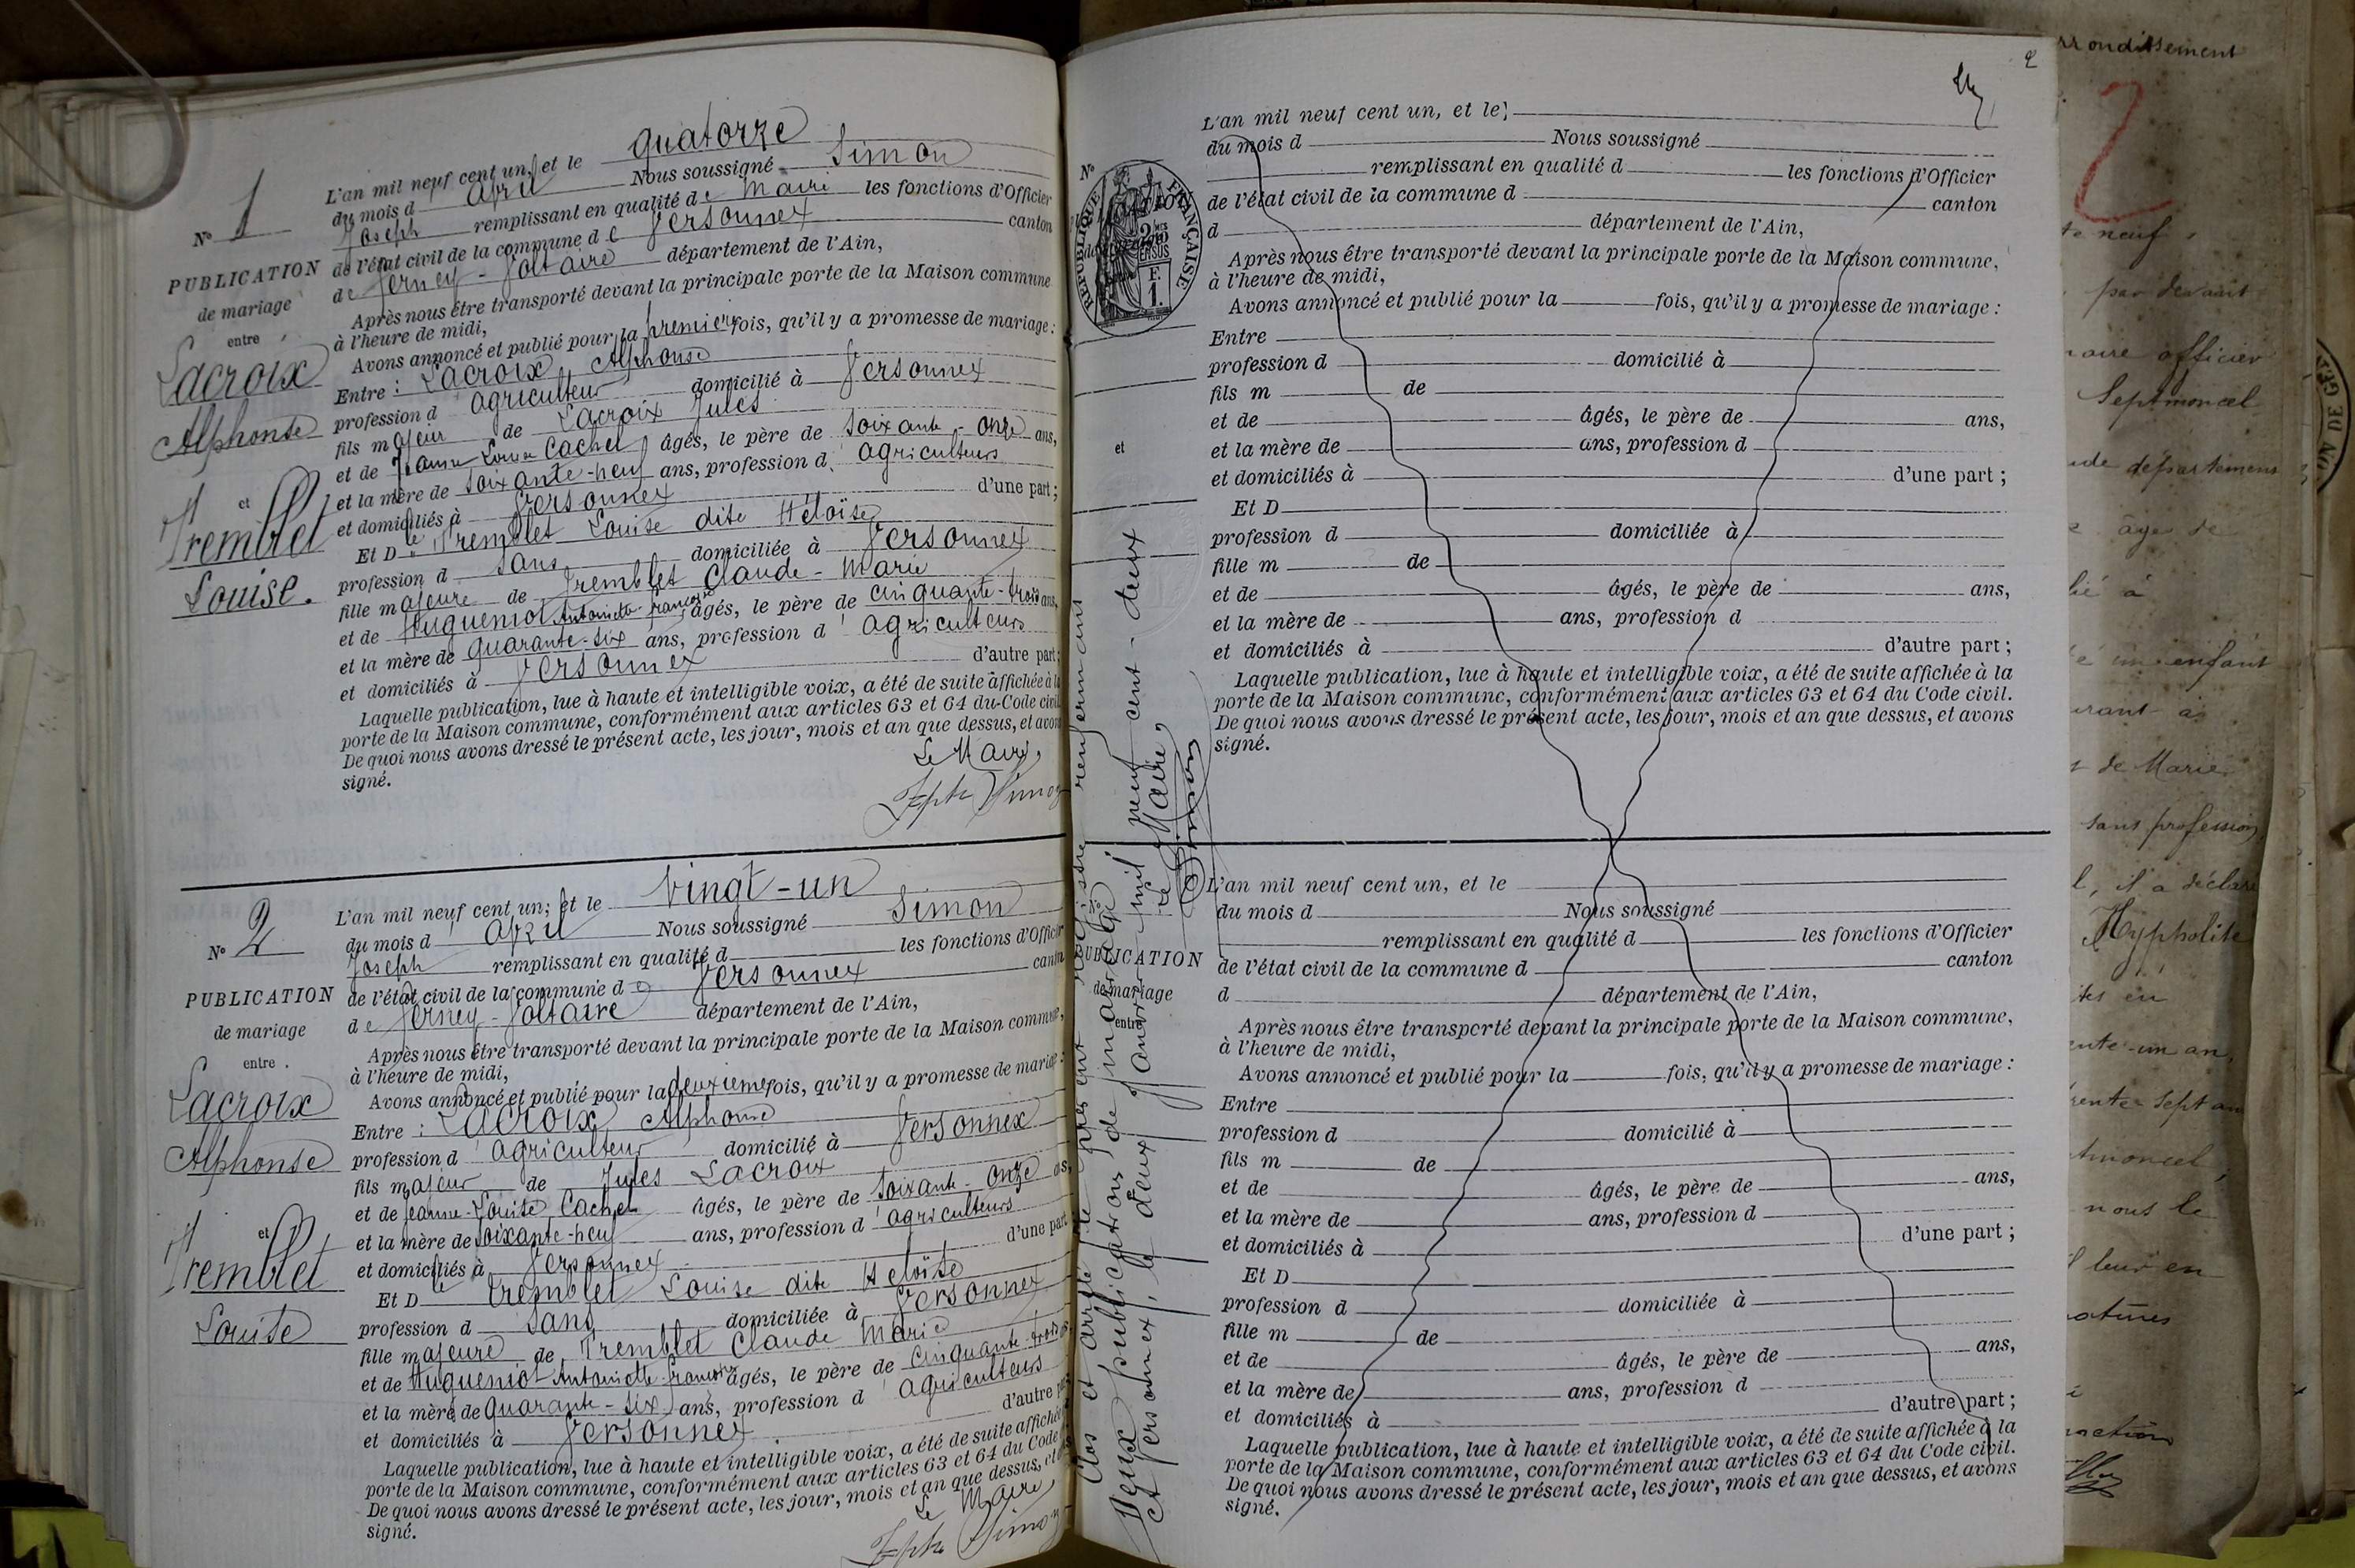 N° 1
PUBLICATION
de mariage
entre
Lacroix
Alphonse
et
Tremblet
Louise.
L'an mil neuf cent un, et le quatorze
du mois d avril Nous soussigné Simon
Joseph remplissant en qualité de Maire les fonctions d'Officier
de l'état civil de la commune de Versonnex canton
de Ferney-Voltaire département de l'Ain,
Après nous être transporté devant la principale porte de la Maison commune
à l'heure de midi,
Avons annoncé et publié pour la première fois, qu'il y a promesse de mariage :
Entre : Lacroix Alphonse
profession d agriculteur domicilié à Versonnex
fils majeur de Lacroix Jules
et de Jeanne Louise Cachet âgés, le père de soixante-onze ans,
et la mère de soixante-neuf ans, profession d agriculteurs
et domiciliés à Versonnex d'une part ;
Et Dlle Tremblet Louise dite Héloïse
profession d sans domiciliée à Versonnex
fille majeure de Tremblet Claude-Marie
et de Hugueniot Antoinette françoise âgés, le père de cinquante-trois ans,
et la mère de quarante-six ans, profession d agriculteurs
et domiciliés à Versonnex d'autre part ;
Laquelle publication, lue à haute et intelligible voix, a été de suite affichée à la
porte de la Maison commune, conformément aux articles 63 et 64 du Code civil
De quoi nous avons dressé le présent acte, les jour, mois et an que dessus, et avons
signé.
Le Maire,
Jph Simon
N° 2
PUBLICATION
de mariage
entre
Lacroix
Alphonse
et
Tremblet
Louise
L'an mil neuf cent un, et le vingt-un
du mois d avril Nous soussigné Simon
Joseph remplissant en qualité d les fonctions d'Officier
de l'état civil de la commune de Versonnex canton
de Ferney-Voltaire département de l'Ain,
Après nous être transporté devant la principale porte de la Maison commune,
à l'heure de midi,
Avons annoncé et publié pour la deuxième fois, qu'il y a promesse de mariage :
Entre : Lacroix Alphonse
profession d agriculteur domicilié à Versonnex
fils majeur de Jules Lacroix
et de Jeanne-Louise Cachet âgés, le père de soixante-onze ans,
et la mère de soixante-neuf ans, profession d agriculteurs
et domiciliés à Versonnex d'une part
Et Dlle Tremblet Louise dite Héloïse
profession d sans domiciliée à Versonnex
fille majeure de Tremblet Claude Marie
et de Hugueniot Antoinette françoise âgés, le père de cinquante-trois
et la mère de quarante-six ans, profession d agriculteurs
et domiciliés à Versonnex d'autre
Laquelle publication, lue à haute et intelligible voix, a été de suite affichée
porte de la Maison commune, conformément aux articles 63 et 64 du Code
De quoi nous avons dressé le présent acte, les jour, mois et an que dessus, et
signé.
Le Maire,
Jph Simon
2
N°
RÉPUBLIQUE FRANÇAISE
F.
1.
et
L'an mil neuf cent un, et le
du mois d Nous soussigné
remplissant en qualité d les fonctions d'Officier
de l'état civil de la commune d canton
d département de l'Ain,
Après nous être transporté devant la principale porte de la Maison commune,
à l'heure de midi,
Avons annoncé et publié pour la fois, qu'il y a promesse de mariage :
Entre
profession d domicilié à
fils m de
et de âgés, le père de ans,
et la mère de ans, profession d
et domiciliés à d'une part ;
Et D
profession d domiciliée à
fille m de
et de âgés, le père de ans,
et la mère de ans, profession d
et domiciliés à d'autre part ;
Laquelle publication, lue à haute et intelligible voix, a été de suite affichée à la
porte de la Maison commune, conformément aux articles 63 et 64 du Code civil.
De quoi nous avons dressé le présent acte, les jour, mois et an que dessus, et avons
signé.
Clos et arrêté le registre renfermant
Deux publications de mariage
et Versonnex, le deux Janvier mil neuf cent-deux
Le Maire,
Simon
PUBLICATION
de mariage
entre
L'an mil neuf cent un, et le
du mois d Nous soussigné
remplissant en qualité d les fonctions d'Officier
de l'état civil de la commune d canton
d département de l'Ain,
Après nous être transporté devant la principale porte de la Maison commune,
à l'heure de midi,
Avons annoncé et publié pour la fois, qu'il y a promesse de mariage :
Entre
profession d domicilié à
fils m de
et de âgés, le père de ans,
et la mère de ans, profession d
et domiciliés à d'une part ;
Et D
profession d domiciliée à
fille m de
et de âgés, le père de ans,
et la mère de ans, profession d
et domiciliés à d'autre part ;
Laquelle publication, lue à haute et intelligible voix, a été de suite affichée à la
porte de la Maison commune, conformément aux articles 63 et 64 du Code civil.
De quoi nous avons dressé le présent acte, les jour, mois et an que dessus, et avons
signé.
2
neuf
par devant
officier
Septmoncel
département
âge de
à
un enfant
de Marie
sans profession
il a déclaré
Hypholite
en
un an,
sept an
nous le
leur en